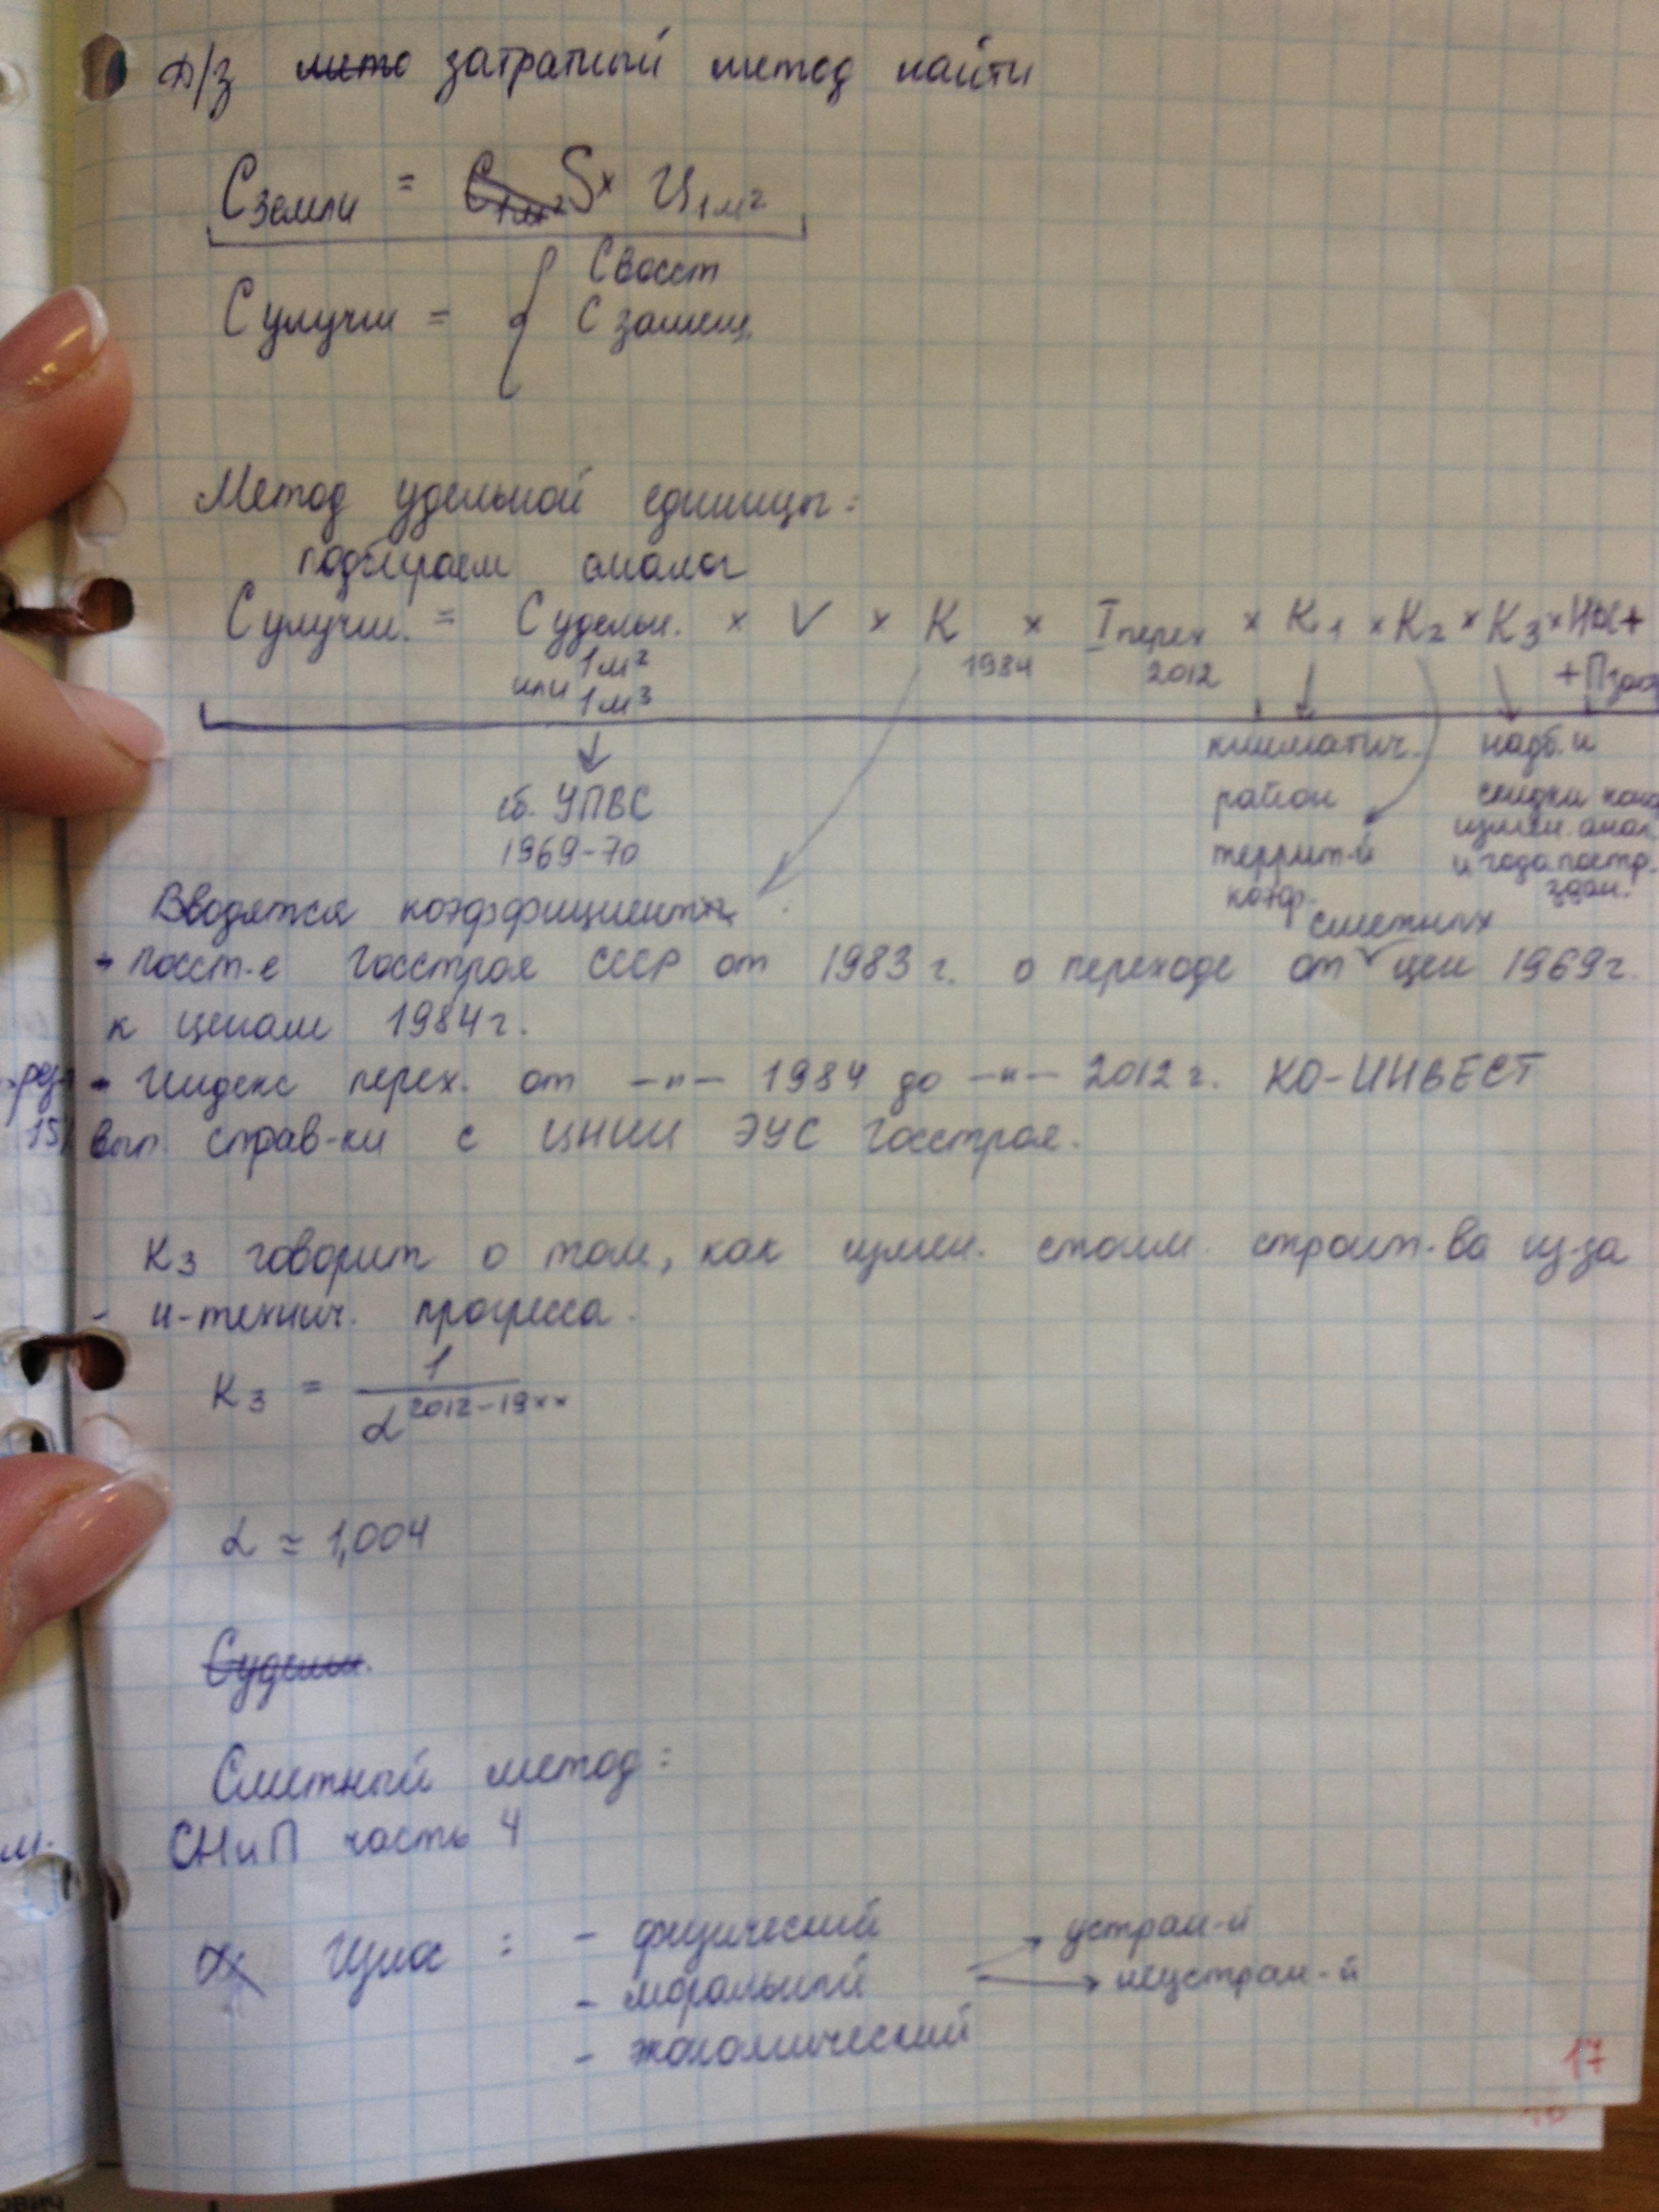 Д/з мето затратный метод найти
С земли = С 1м² S × Ц 1м²
С улучш = { С восст
С замещ.
Метод удельной единицы:
подбираем аналог
С улучш. = С удельн. × V × К × I перех × К1 × К2 × К3 × НДС +
1м² 1984 2012 + П
или 1м³
сб. УПВС
1969-70
климатич.
район
территт-й
коэф.
надб. и
скидки
измен. анал.
и года постр.
здан.
Вводятся коэффициенты
- Пост-е Госстроя СССР от 1983 г. о переходе от сметных цен 1969 г.
к ценам 1984 г.
- Индекс перех. от —"— 1984 до —"— 2012 г. КО-ИНВЕСТ
вып. справ-ки с ЦНИИ ЭУС Госстроя.
К3 говорит о том, как измен. стоим. строит-ва из-за
- н-технич. прогресса.
К3 = 1 / α^2012-19хх
α ≈ 1,004
С удельн.
Сметный метод:
СНиП часть 4
Износ : - физический → устран-й
- моральный → неустран-й
- экономический
17
16